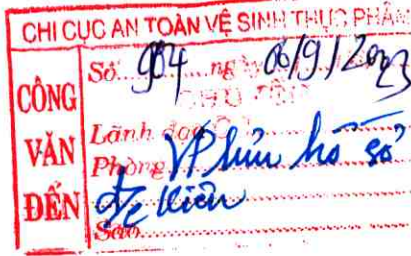 CHI CỤC AN TOÀN VỆ SINH THỰC PHẨM
CÔNG VĂN ĐẾN
Số 904 ngày 06/9/2023
Lãnh đạo
Phòng VP lưu hồ sơ
đ/c Kiên
Sao